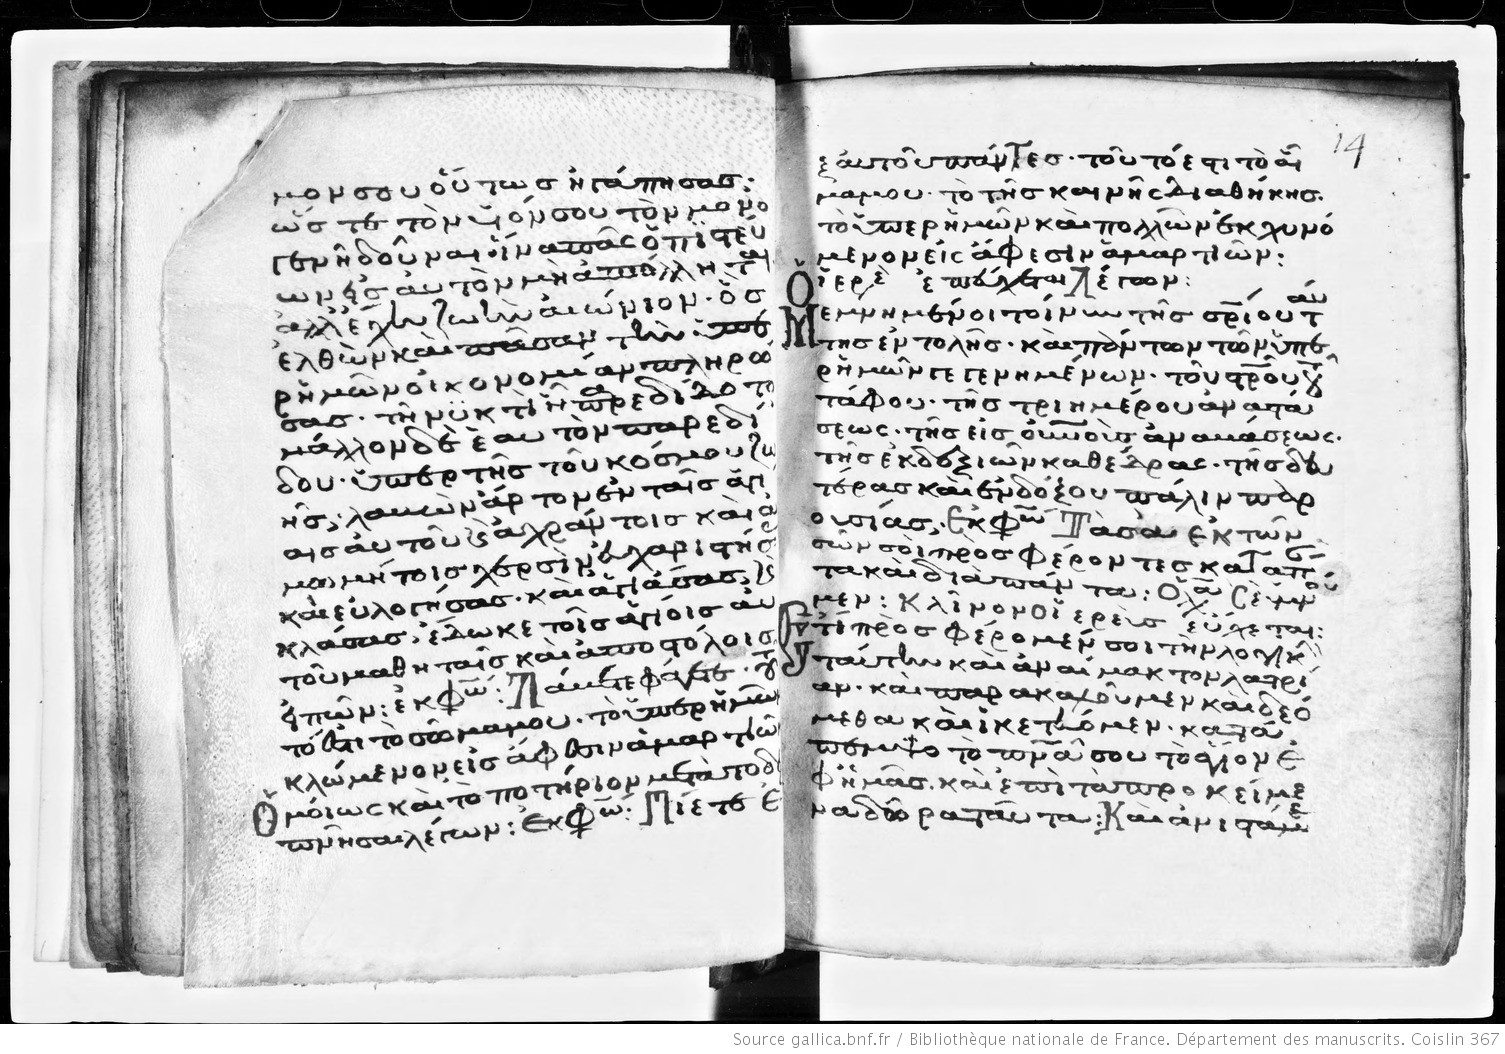 μον σου οὕτως ἠγάπησας·
ὥστε τὸν υἱόν σου τὸν μονο
γενῆ δοῦναι ἵνα πᾶς ὁ πιστεύ
ων εἰς αὐτὸν μὴ ἀπόληται
ἀλλ' ἔχη ζωὴν αἰώνιον· ὃς
ἐλθὼν καὶ πᾶσαν τὴν ὑπὲ
ρ ἡμῶν οἰκονομίαν πληρώ
σας· τῆ νυκτὶ ἧ παρεδίδοτο
μάλλον δὲ ἑαυτὸν παρεδί
δου· ὑπὲρ τῆς τοῦ κόσμου ζω
ῆς· λαβὼν ἄρτον ἐν ταῖς ἁγί
αις αὐτοῦ καὶ ἀχράντοις καὶ ἀ
μωμήτοις χερσὶν εὐχαριστήσ
καὶ εὐλογήσας· καὶ ἁγιάσας·
κλάσας· ἔδωκε τοῖς ἁγίοις αὐ
τοῦ μαθηταῖς καὶ ἀποστόλοις
εἰπών: ἐκφω: Λάβετε φάγετε·
τό ἐστι τὸ σῶμα μου· τὸ ὑπὲρ ἡμῶν
κλώμενον εἰς ἄφεσιν ἁμαρτιῶν
Ὁμοίως καὶ τὸ ποτήριον μετὰ τὸ δει
πνῆσαι λέγων: Ἐκφω: Πίετε ἐ
14
ξ αὐτοῦ πάντες· τοῦτό ἐστι τὸ αἷ
μα μου· τὸ τῆς καινῆς διαθήκης·
τὸ ὑπὲρ ἡμῶν καὶ πολλῶν ἐκχυνό
μενον εἰς ἄφεσιν ἁμαρτιῶν:
Ὁ ἱερε ἐπεύχεται λέγων:
Μεμνημένοι τοίνυν τῆς σριου ταυ
της ἐντολῆς· καὶ πάντων τῶν ὑπὲ
ρ ἡμῶν γεγενημένων· τοῦ στρου τοῦ
τάφου· τῆς τριημέρου ἀναστά
σεως· τῆς εἰς οὐνοὺς ἀναβάσεως·
τῆς ἐκ δεξιῶν καθέδρας· τῆς δευ
τέρας καὶ ἐνδόξου πάλιν παρ
ουσίας· Ἐκφω Τὰ σὰ ἐκ τῶν
σῶν σοὶ προσφέροντες κατὰ πά
τα καὶ διὰ πάντα: Ὁ λα Σὲ ὑμνοῦ
μεν: Κλίνον ὁ ἱερεὺς εὔχεται:
Ἔτι προσφέρομέν σοι τὴν λογικὴ
ταύτην καὶ ἀναίμακτον λατρεί
αν· καὶ παρακαλοῦμεν καὶ δεό
μεθα καὶ ἱκετεύομεν· κατά
πεμψον τὸ πνα σου τὸ ἅγιον ἐ
φ' ἡμᾶς· καὶ ἐπὶ τὰ προκείμε
να δῶρα ταῦτα: Καὶ ἀνιστάμε
Source gallica.bnf.fr / Bibliothèque nationale de France. Département des manuscrits. Coislin 367